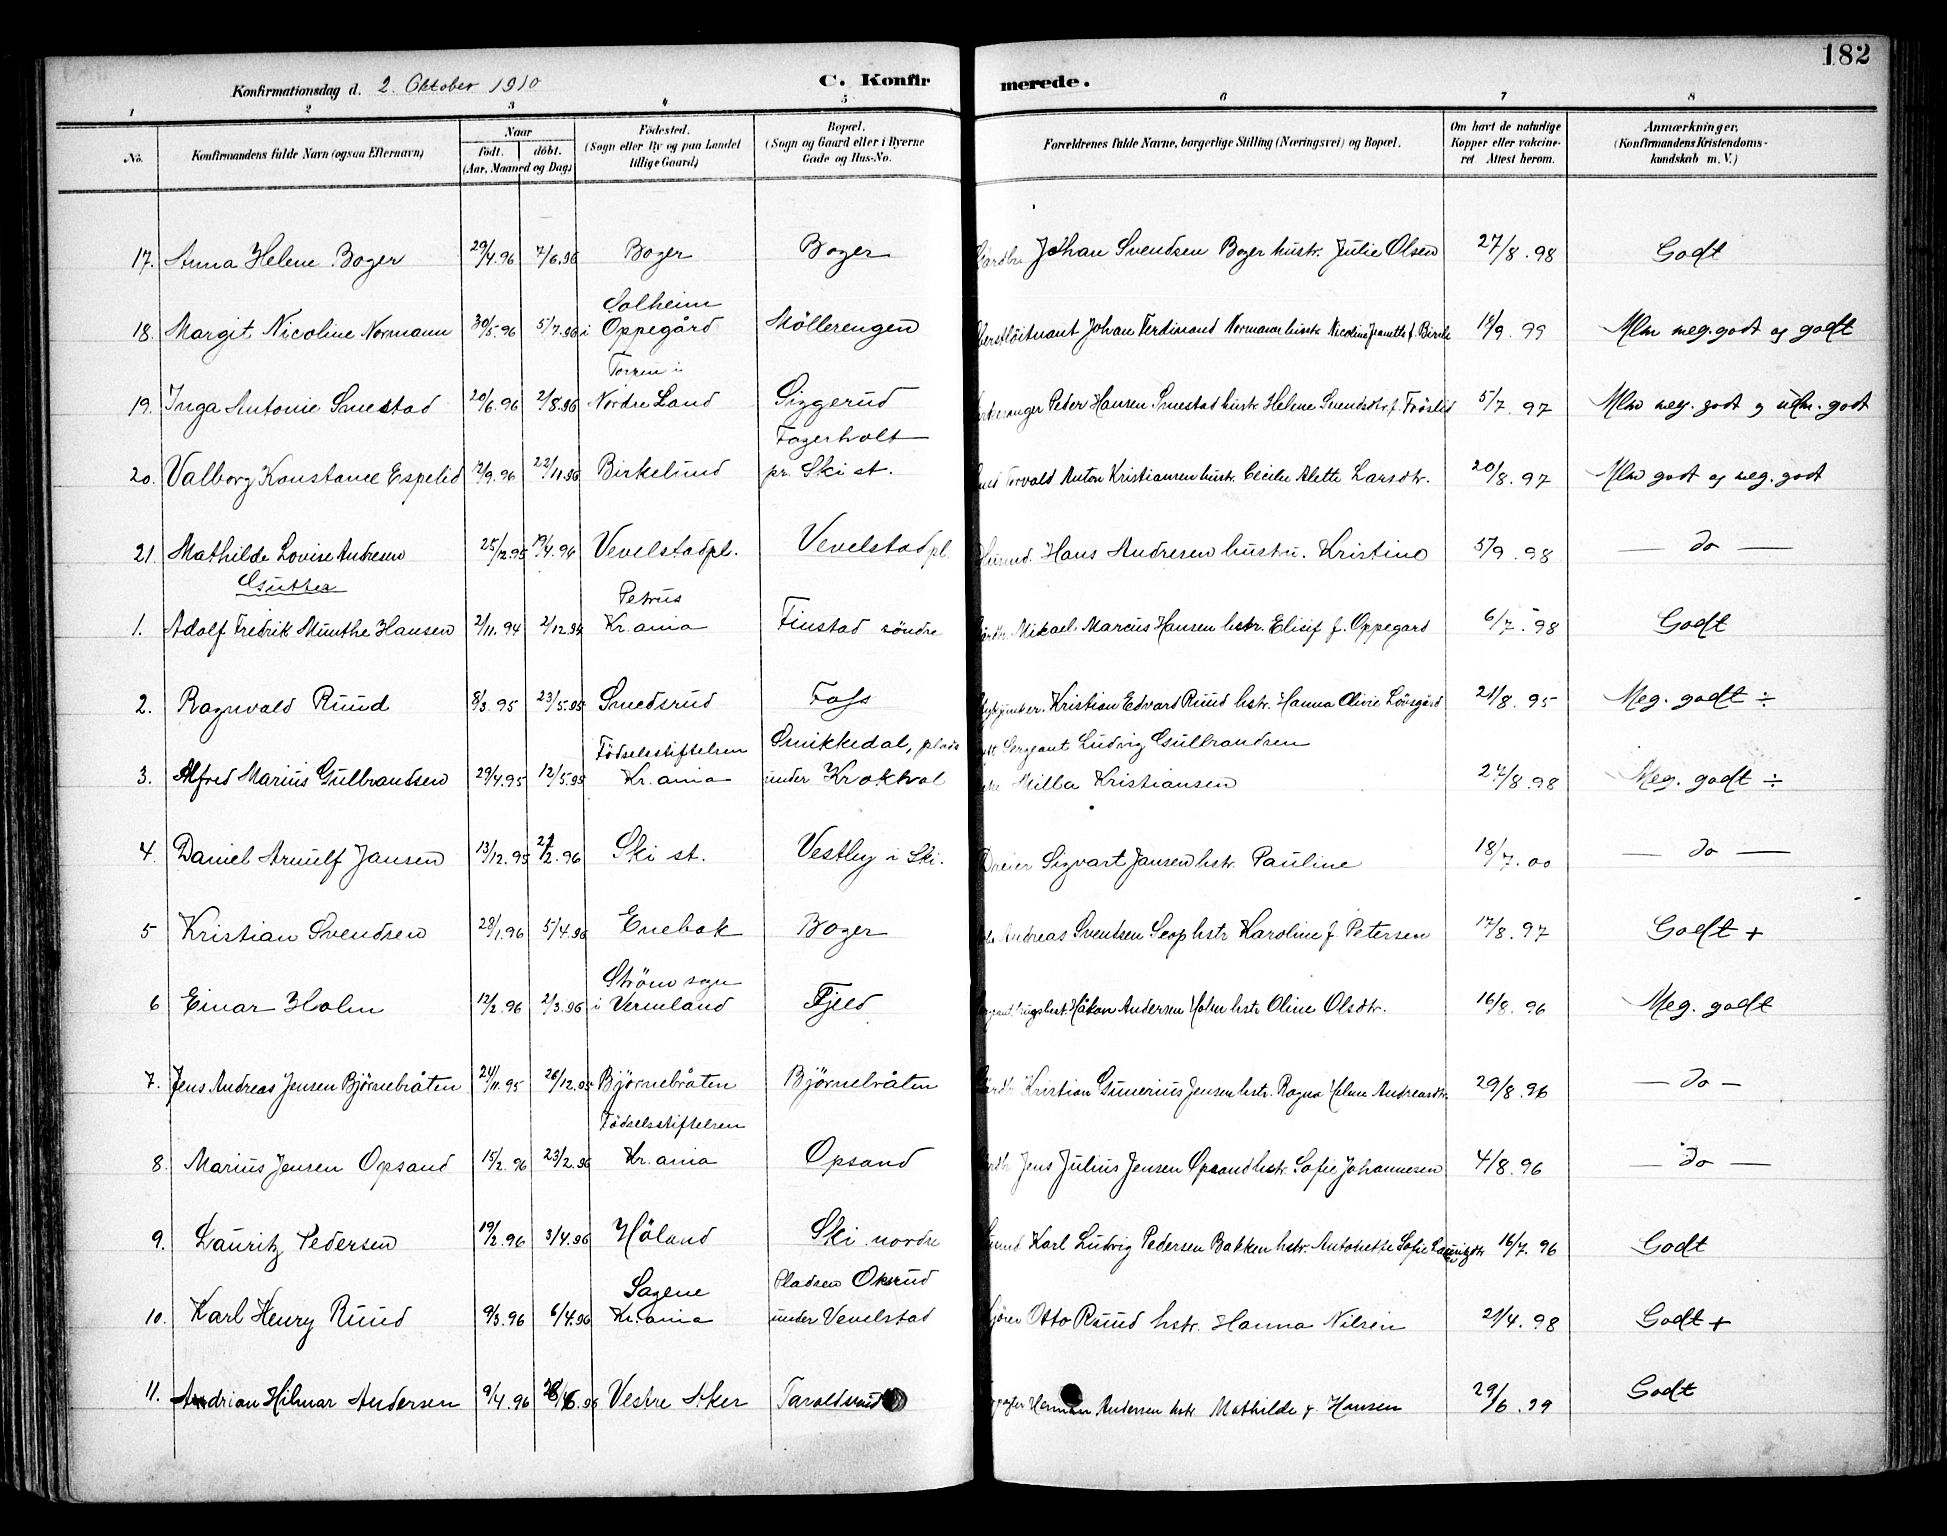 182
Konfirmationsdag d. 2. Oktober 1910 C. Konfirmerede.
1 2 3 4 5 6 7 8
No. Konfirmandens fulde Navn (ogsaa Efternavn) Naar født. døbt. (Aar, Maaned og Dag) Fødested. (Sogn eller By og paa Landet tillige Gaard) Bopæl. (Sogn og Gaard eller i Byerne Gade og Hus-No. Forældrenes fulde Navne, borgerlige Stilling (Næringsvei) og Bopæl. Om havt de naturlige Kopper eller vaccineret Attest herom. Anmærkninger. (Konfirmandens Kristendomskundskab m. V.)
17. Anna Helene Boger 29/4.96 7/6.96 Boger Boger Gårdbr Johan Svendsen Boger hustr. Julie Olsen 27/8.98 Godt
18. Margit Nicoline Normann 30/5.96 5/7.96 Solheim i Oppegård Møllerengen Oberstløitnant Johan Ferdinand Normann hustr. Nicoline Jeanette f. Birch 18/9.99 Mlm meg. godt og godt
19. Inga Antonie Smestad 20/6.96 2/8.96 Nordre Land Siggerud Peder Hansen Smestad hustr. Helene Svendsdtr. f. Frøslid 5/7.97 Mlm meg. godt og udm. godt
20. Valborg Konstance Espelid 12/9.96 22/11.96 Birkelund Fagerholt pr. Ski st. Torvald Anton Kristiansen hustr. Cecilie Alette Larsdtr. 20/8.97 Mlm godt og meg. godt
21. Mathilde Lovise Andresen 25/12.95 19/4.96 Vevelstadpl. Vevelstadpl. Hans Andresen hustru. Kristine 5/9.98 — do —
Gutter
1. Adolf Fredrik Munthe Hansen 2/11.94 2/12.94 Petrus Kr.ania Finstad søndre Mikael Marcus Hansen hstr. Elisif f. Oppegard 6/7.98 Godt
2. Ragnvald Ruud 8/3.95 23/5.95 Smedsrud Foss Kristian Edvard Ruud hstr. Hanna Olivie Løvsgård 21/8.95 Meg. godt ÷
3. Alfred Marius Gulbrandsen 29/4.95 12/5.95 Fødselsstiftelsen Kr.ania Smikkedal, plads under Krokhol Sergeant Ludvig Gulbrandsen Milla Kristiansen 27/8.98 Meg. godt ÷
4. Daniel Arnulf Jansen 13/12.95 2/2.96 Ski st. Vestby i Ski. Dreier Sigvart Jansen hstr. Pauline 18/7.00 — do —
5 Kristian Svendsen 28/1.96 5/4.96 Enebak Boger Andreas Svendsen hstr Karoline f. Petersen 17/8.97 Godt +
6 Einar Holm 12/2.96 2/3.96 Strøm sogn i Vermland Fjeld Håkon Andersen Holm hstr Oline Olsdtr. 16/8.96 Meg. godt
7. Jens Andreas Jensen Bjørnebråten 24/11.95 26/12.95 Bjørnebråten Bjørnebråten Gårdbr Kristian Gunerius Jensen hstr. Ragna Helene Andreasdtr. 29/8.96 — do —
8. Marius Jensen Opsand 15/2.96 23/2.96 Fødselsstiftelsen Kr.ania Opsand Jens Julius Jensen Opsand hstr. Sofie Johannesen 4/8.96 — do —
9. Lauritz Pedersen 19/2.96 3/4.96 Høland Ski nordre Karl Ludvig Pedersen Bakken hstr. Antonette Sofie Lauritzdtr 16/7.96 Godt
10. Karl Henry Ruud 9/3.96 6/4.96 Sagene Kr.ania Pladsen Oksrud under Vevelstad Otto Ruud hstr. Hanna Nilsen 21/4.98 Godt +
11. Andrian Hilmar Andersen 9/4.96 Vestre Aker Taraldsrud Herman Andersen hstr Mathilde f. Hansen 29/6.99 Godt